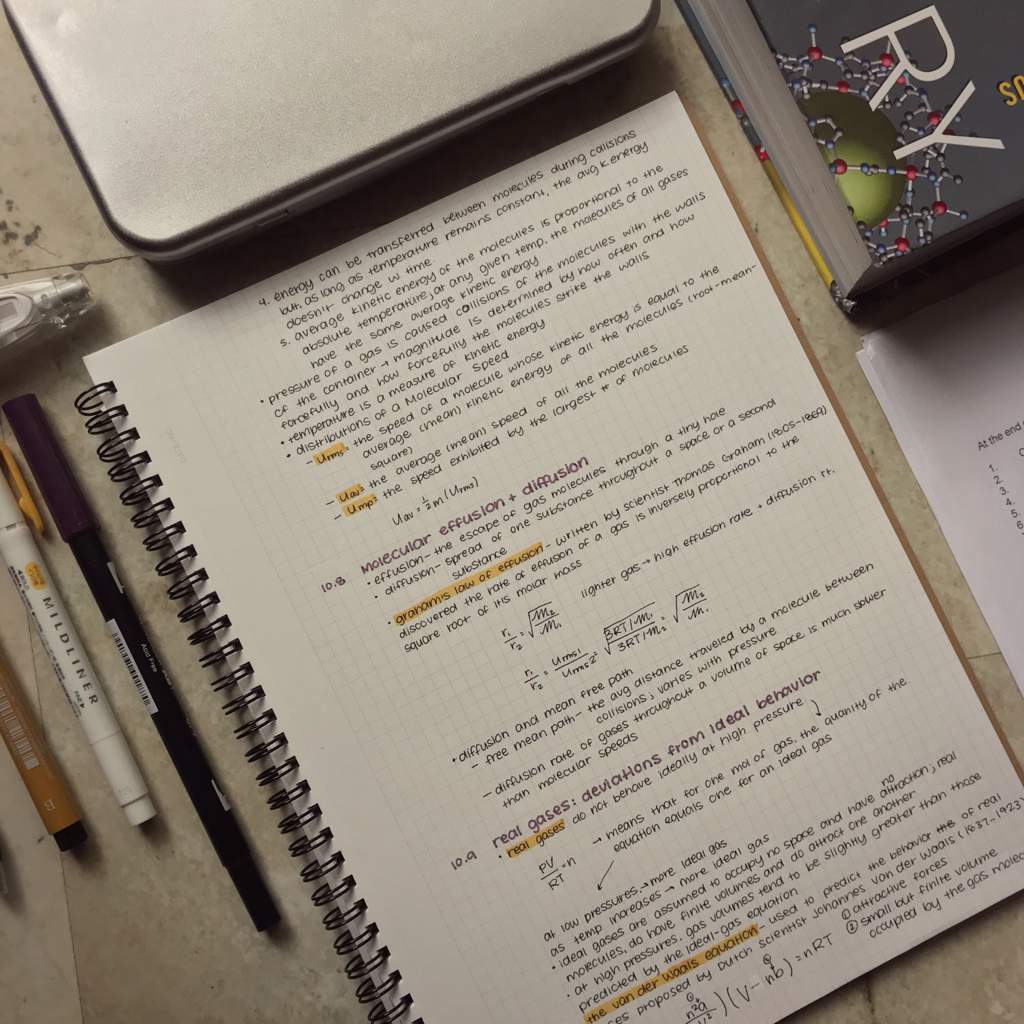 RY
SO
4. energy can be transferred between molecules during collisions
but, as long as temperature remains constant, the avg k. energy
doesn't change w time
5. average kinetic energy of the molecules is proportional to the
absolute temperature; at any given temp, the molecules of all gases
have the same average kinetic energy
• pressure of a gas is caused collisions of the molecules with the walls
of the container → magnitude is determined by how often and how
forcefully and how forcefully the molecules strike the walls
• temperature is a measure of kinetic energy
• distributions of a Molecular Speed
- Urms: the speed of a molecule whose kinetic energy is equal to the
average (mean) kinetic energy of all the molecules (root-mean-
square)
- Uav: the average (mean) speed of all the molecules
- Ump: the speed exhibited by the largest # of molecules
Uav = ½ m (Urms)
10.8. molecular effusion + diffusion
• effusion - the escape of gas molecules through a tiny hole
• diffusion - spread of one substance throughout a space or a second
substance
• graham's law of effusion - written by scientist Thomas Graham (1805-1869)
discovered the rate of effusion of a gas is inversely proportional to the
square root of its molar mass
r₁/r₂ = √(M₂/M₁) lighter gas → high effusion rate + diffusion rt.
r₁/r₂ = Urms1/Urms2 = √(3RT/M₁)/(3RT/M₂) = √(M₂/M₁)
• diffusion and mean free path
- free mean path - the avg distance traveled by a molecule between
collisions; varies with pressure
- diffusion rate of gases throughout a volume of space is much slower
than molecular speeds
10.9 real gases: deviations from ideal behavior
• real gases do not behave ideally at high pressure
PV/RT = n → means that for one mol of gas, the quanity of the
equation equals one for an ideal gas
at low pressures → more ideal gas
as temp increases → more ideal gas
• ideal gases are assumed to occupy no space and have no attraction; real
molecules, do have finite volumes and do attract one another
• at high pressures, gas volumes tend to be slightly greater than those
predicted by the ideal-gas equation
• the van der waals equation - used to predict the behavior the of real
proposed by Dutch scientist Johannes van der Waals (1837-1923)
① attractive forces
② small but finite volume
occupied by the gas
n²a
)(V - nb) = nRT
MILDLINER
Acid Free
At the end
1.
2.
3.
4.
5.
6